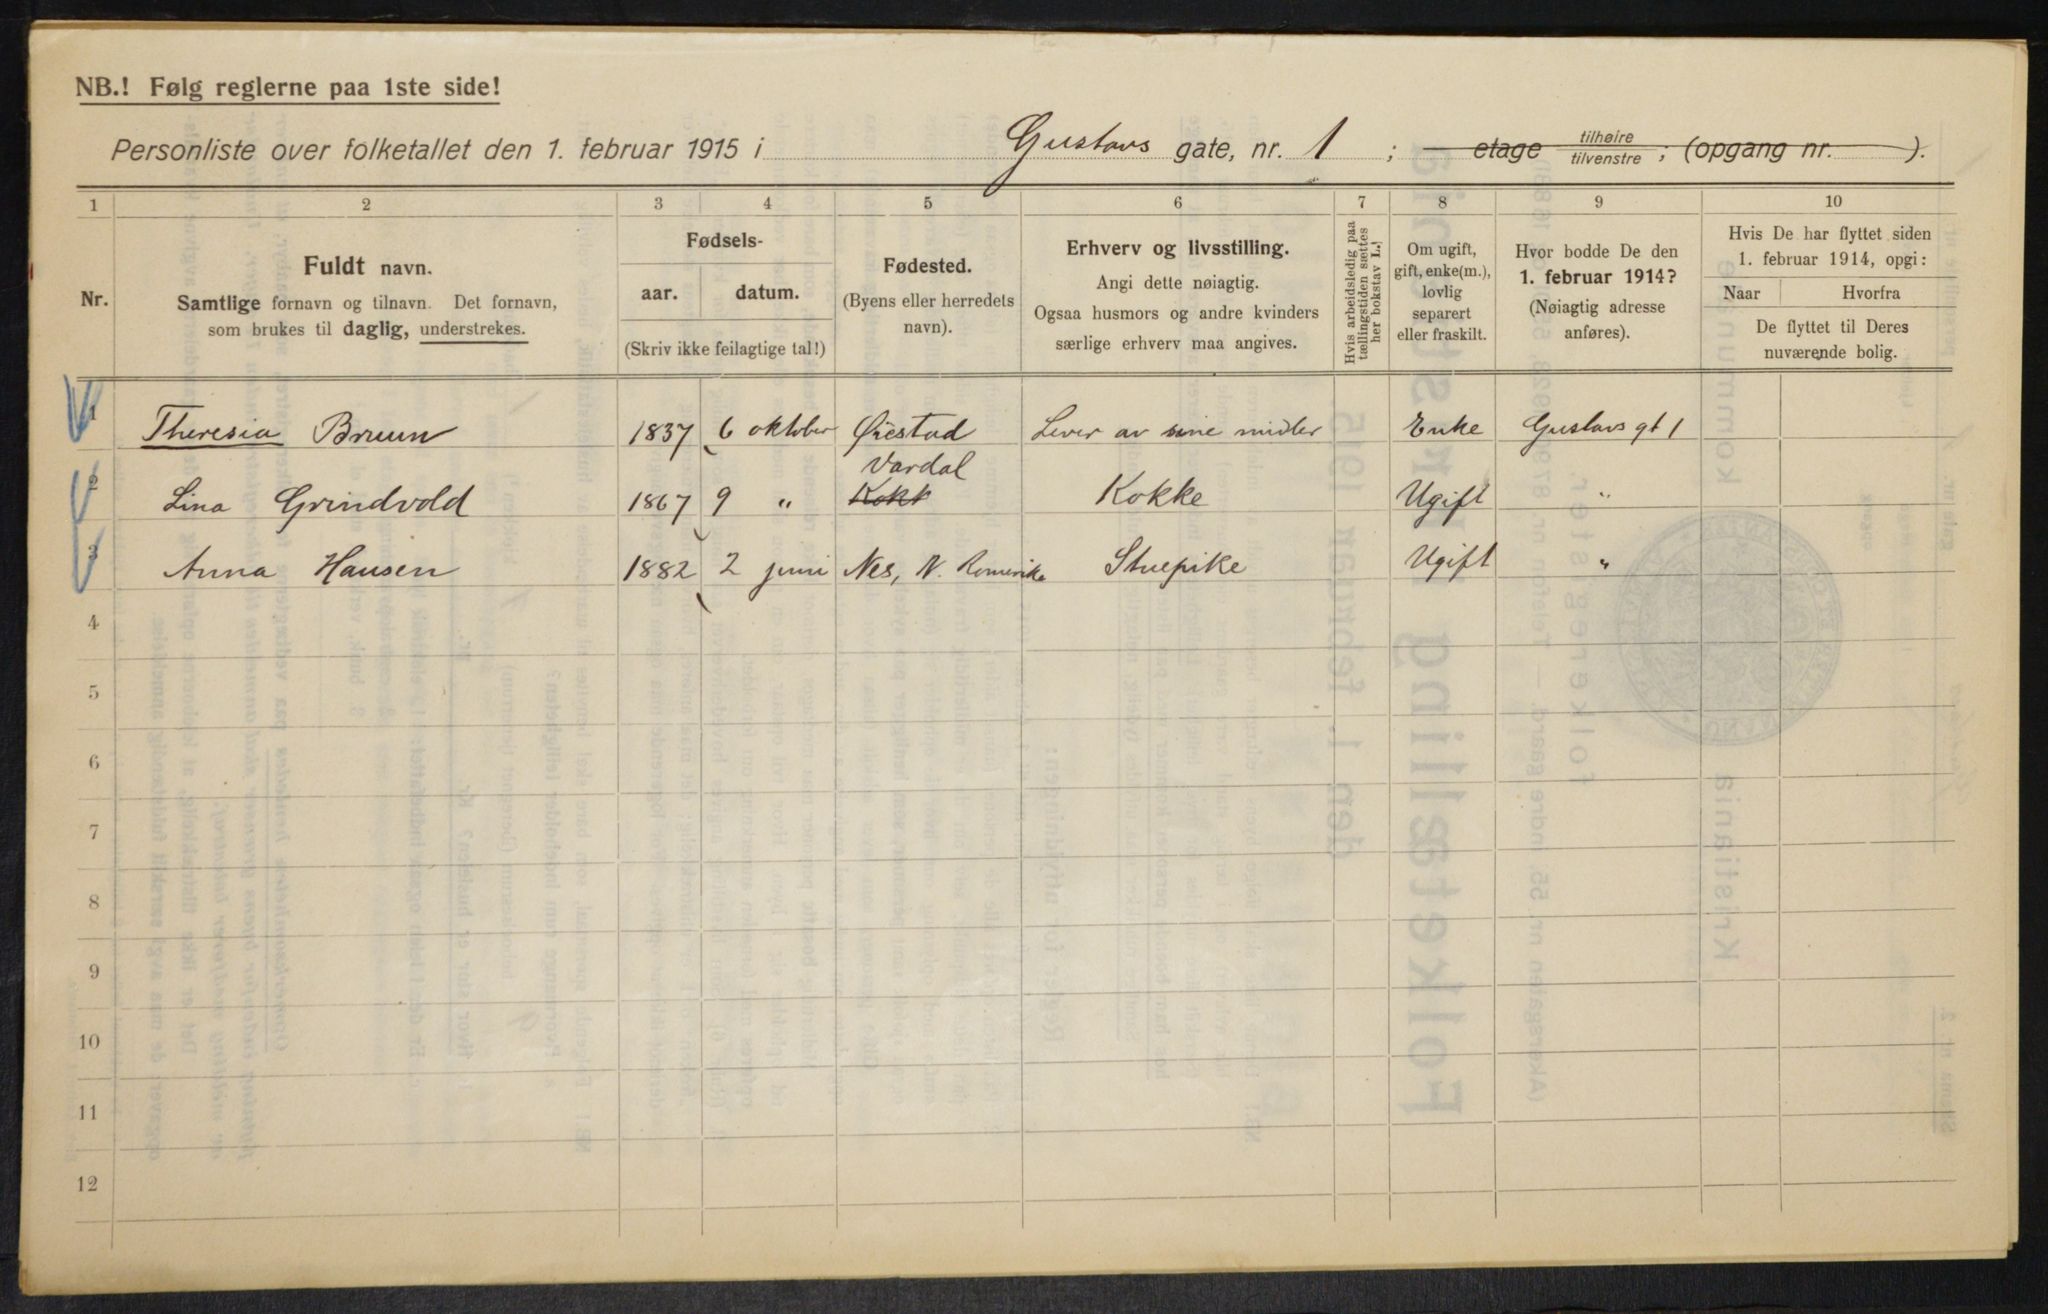 NB.! Følg reglerne paa 1ste side!
Personliste over folketallet den 1. februar 1915 i Gustavs gate, nr. 1 ; etage tilhøire tilvenstre ; (opgang nr. ).
1 2 3 4 5 6 7 8 9 10
Nr.
Fuldt navn.
Samtlige fornavn og tilnavn. Det fornavn,
som brukes til daglig, understrekes.
Fødsels-
aar. datum.
(Skriv ikke feilagtige tal!)
Fødested.
(Byens eller herredets
navn).
Erhverv og livsstilling.
Angi dette nøiagtig.
Ogsaa husmors og andre kvinders
særlige erhverv maa angives.
Hvis arbeidsledig paa
tællingstiden sættes
her bokstav L.)
Om ugift,
gift, enke(m.),
lovlig
separert
eller fraskilt.
Hvor bodde De den
1. februar 1914?
(Nøiagtig adresse
anføres).
Hvis De har flyttet siden
1. februar 1914, opgi:
Naar Hvorfra
De flyttet til Deres
nuværende bolig.
1 Theresia Bruun 1837 6 oktober Øiestad Lever av sine midler Enke Gustavs gt 1
Vardal
2 Lina Grindvold 1867 9 " Kokk Kokke Ugift "
3 Anna Hansen 1882 2 juni Nes, N. Romerike Stuepike Ugift "
4
5
6
7
8
9
10
11
12